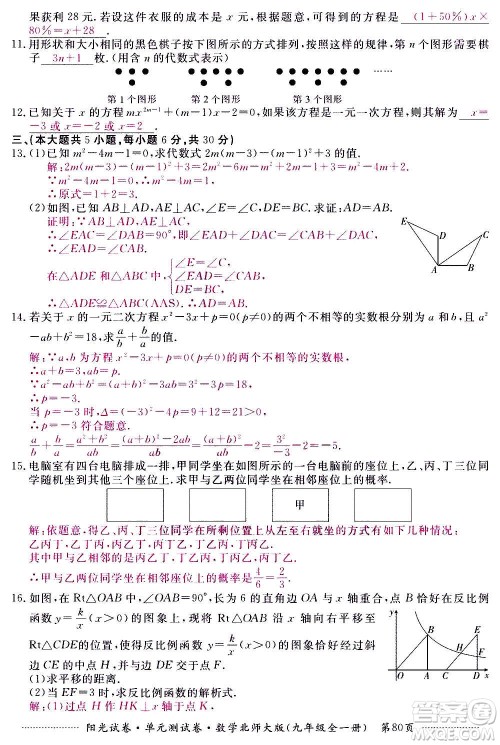 果获利 28 元. 若设这件衣服的成本是 x 元,根据题意,可得到的方程是 (1+50%)x×
80%=x+28.
11.用形状和大小相同的黑色棋子按下图所示的方式排列,按照这样的规律,第 n 个图形需要棋
子 3n+1 枚.(用含 n 的代数式表示)
……
第 1 个图形 第 2 个图形 第 3 个图形
12.已知关于 x 的方程
如果该方程是一元一次方程,则该方程的解为 x=
-3 或 x=-2 或 x=
三、(本大题共 5 小题,每小题 6 分,共 30 分)
13.(1)已知 m²-4m-1=0,求代数式 2m(m-3)-(m-1)(m+1)的值.
解:2m(m-3)-(m-1)(m+1)=2m²-6m-m²+1=
∵m²-4m-1=0,∴m²-4m=1.
∴原式=1+2=3.
(2)如图,已知 AB⊥AD,AE⊥AC,∠E=∠C,DE=BC. 求证:AD=AB.
证明:∵AB⊥AD,AE⊥AC,
∴∠EAC=∠DAB=90°,
∴∠EAD=∠CAB.
在△ADE 和△ABC 中,
∠E=∠C,
∠EAD=∠CAB,
DE=BC,
∴△ADE≌△ABC(AAS).∴AD=AB.
E D C A B
14.若关于 x 的一元二次方程 x²-3x+p=0 的两个不相等的实数根分别为 a 和 b,且
a²-ab+b²=18,求 a/b+b/a 的值.
解:∵a,b 为方程 x²-3x+p=0 的两个不相等的实数根,
∴a+b=3,ab=p.
∵a²-ab+b²=(a+b)²-3ab=3²-3p=18,
∴p=-3.
当 p=-3 时,Δ=(-3)²-4p=9+12=21>0,
∴p=-3 符合题意.
a/b+b/a=(a²+b²)/ab=((a+b)²-2ab)/ab=3²/-3-2=-5.
15.电脑室有四台电脑排成一排,甲同学坐在如图所示的一台电脑前的座位上,乙、丙、丁三位同学
随机坐到其他三个座位上. 求甲与乙两位同学坐在相邻座位上的概率.
甲
解:依题意,得乙、丙、丁三位同学在所剩位置上从左至右就坐的方式有如下几种情况:
乙丙丁,乙丁丙,丙乙丁,丙丁乙,丁乙丙,丁丙乙,
其中甲与乙相邻而坐的是:
丙乙丁,丙丁乙,丁乙丙,丁丙乙.
∴甲与乙两位同学坐在相邻座位上的概率是 4/6=2/3.
16.如图,在 Rt△OAB 中,∠OAB=90°,长为 6 的直角边 OA 与 x 轴重合,点 B 恰好在反比例
函数 y=k/x(x>0)的图象上,将 Rt△OAB 沿 x 轴方向向右平移至
Rt△CDE的位置,使得反比例函数 y=k/x的图象恰好经过斜边
CE 的中点 H,并与 DE 交于点 F.
(1)求平移的距离;
(2)求点 F 的坐标.
y B E H F O C A D x
阳光试卷·单元测试卷·数学北师大版(九年级全一册) 第80页